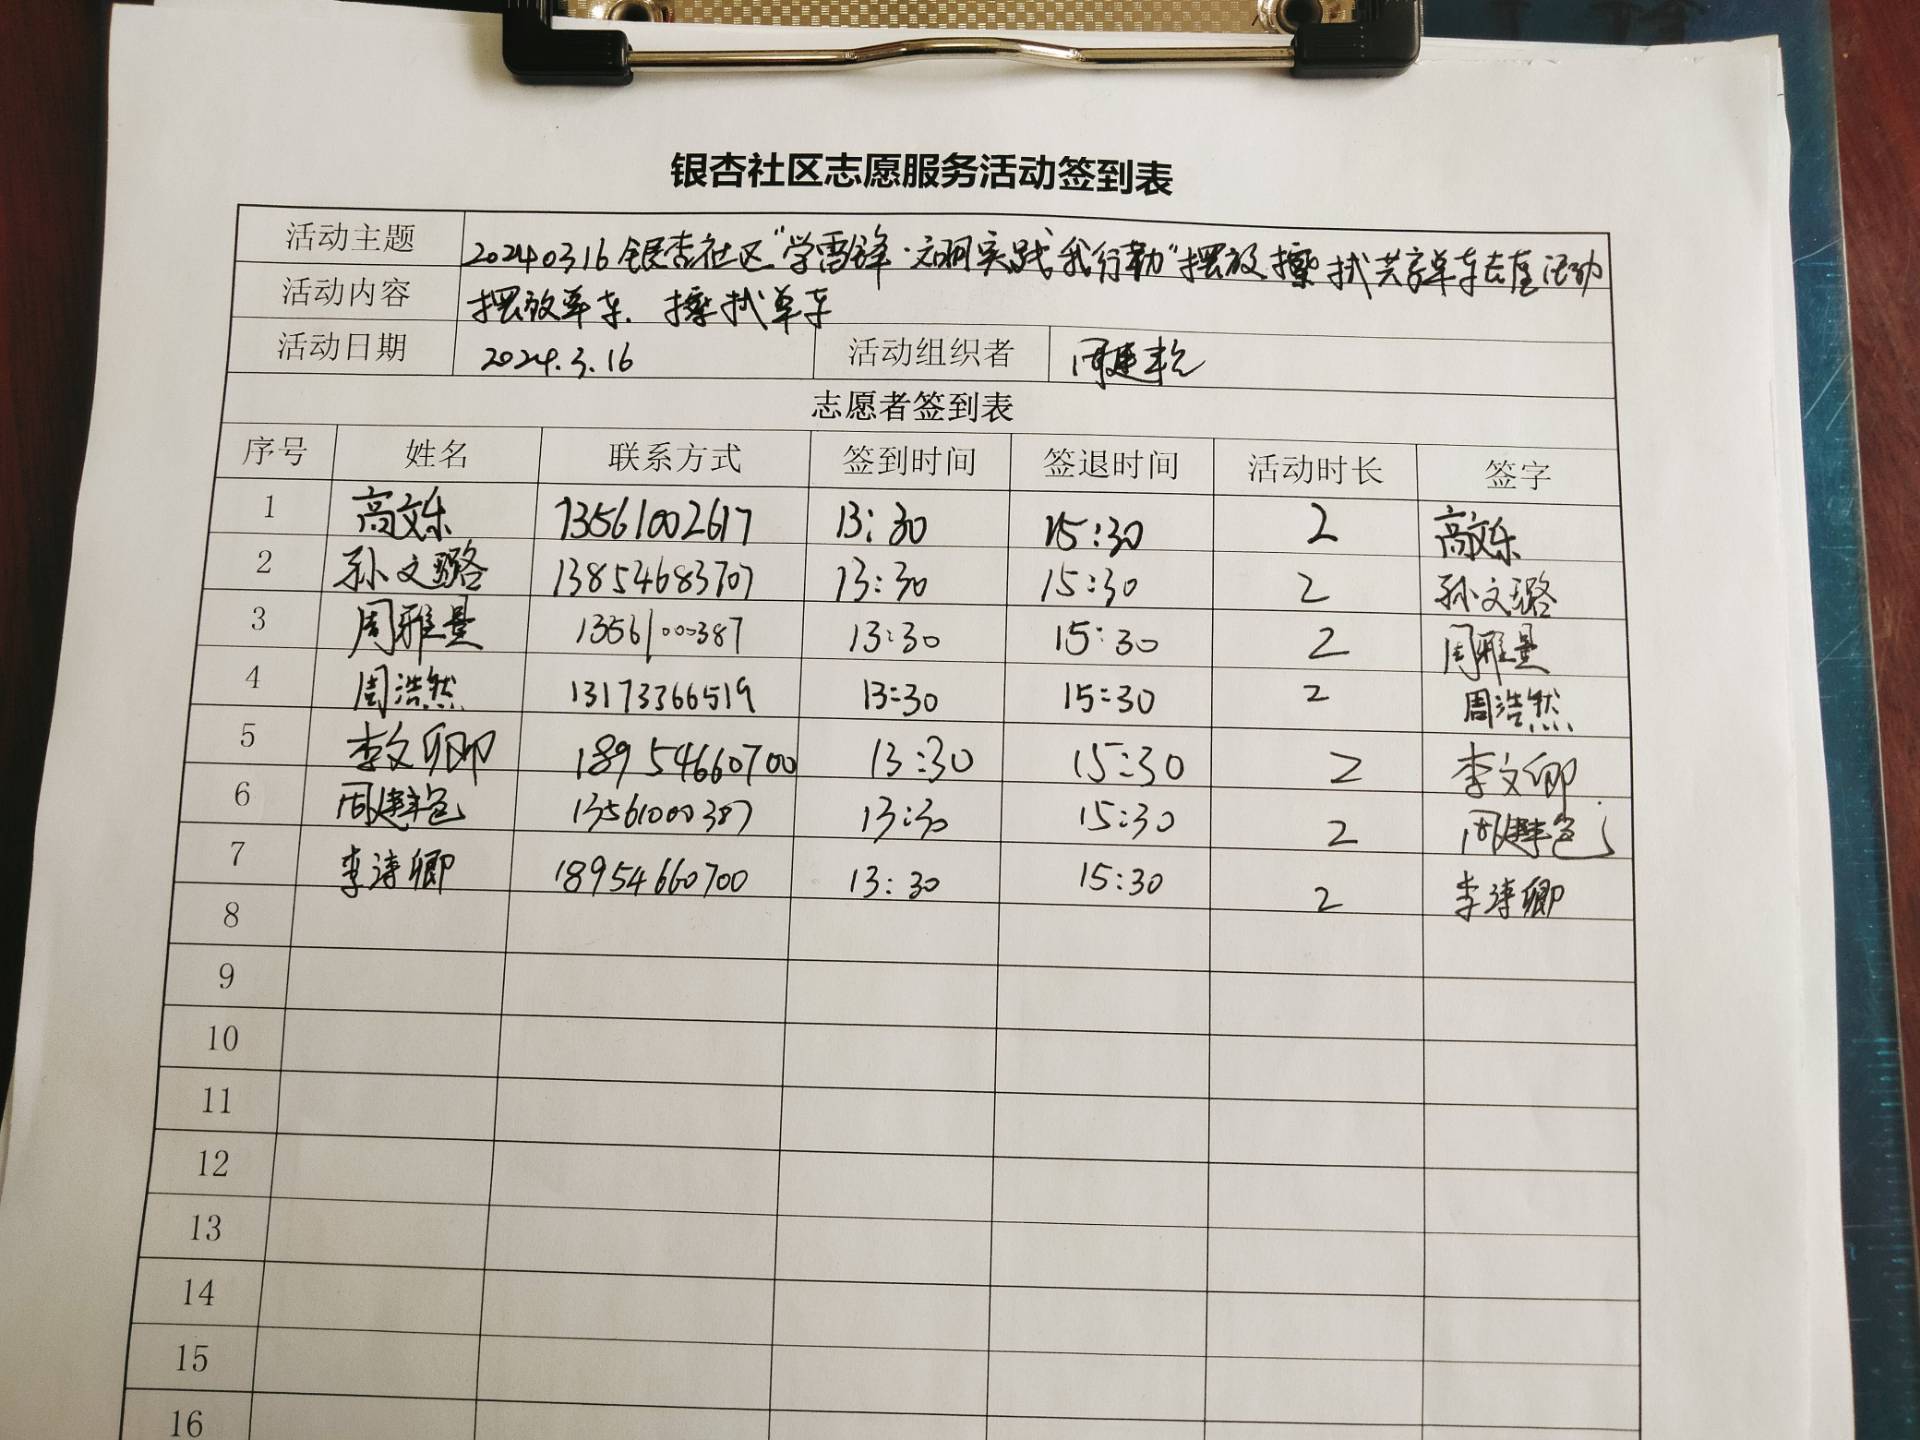 银杏社区志愿服务活动签到表
活动主题 20240316银杏社区“学雷锋·文明实践我行动”摆放擦拭共享单车志愿活动
活动内容 摆放单车、擦拭单车
活动日期 2024.3.16 活动组织者 周建
志愿者签到表
序号 姓名 联系方式 签到时间 签退时间 活动时长 签字
1 高文乐 13561002617 13:30 15:30 2 高文乐
2 孙文璐 13854683707 13:30 15:30 2 孙文璐
3 周雅量 13561000387 13:30 15:30 2 周雅量
4 周浩然 13173366519 13:30 15:30 2 周浩然
5 李文卿 18954660700 13:30 15:30 2 李文卿
6 周建 13561000387 13:30 15:30 2 周建
7 李涛卿 18954660700 13:30 15:30 2 李涛卿
8
9
10
11
12
13
14
15
16